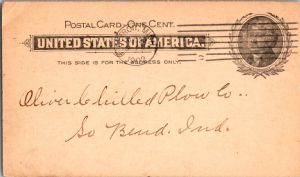 POSTAL CARD - ONE CENT.
UNITED STATES OF AMERICA.
THIS SIDE IS FOR THE ADDRESS ONLY.
Oliver Chilled Plow Co.,
So Bend. Ind.